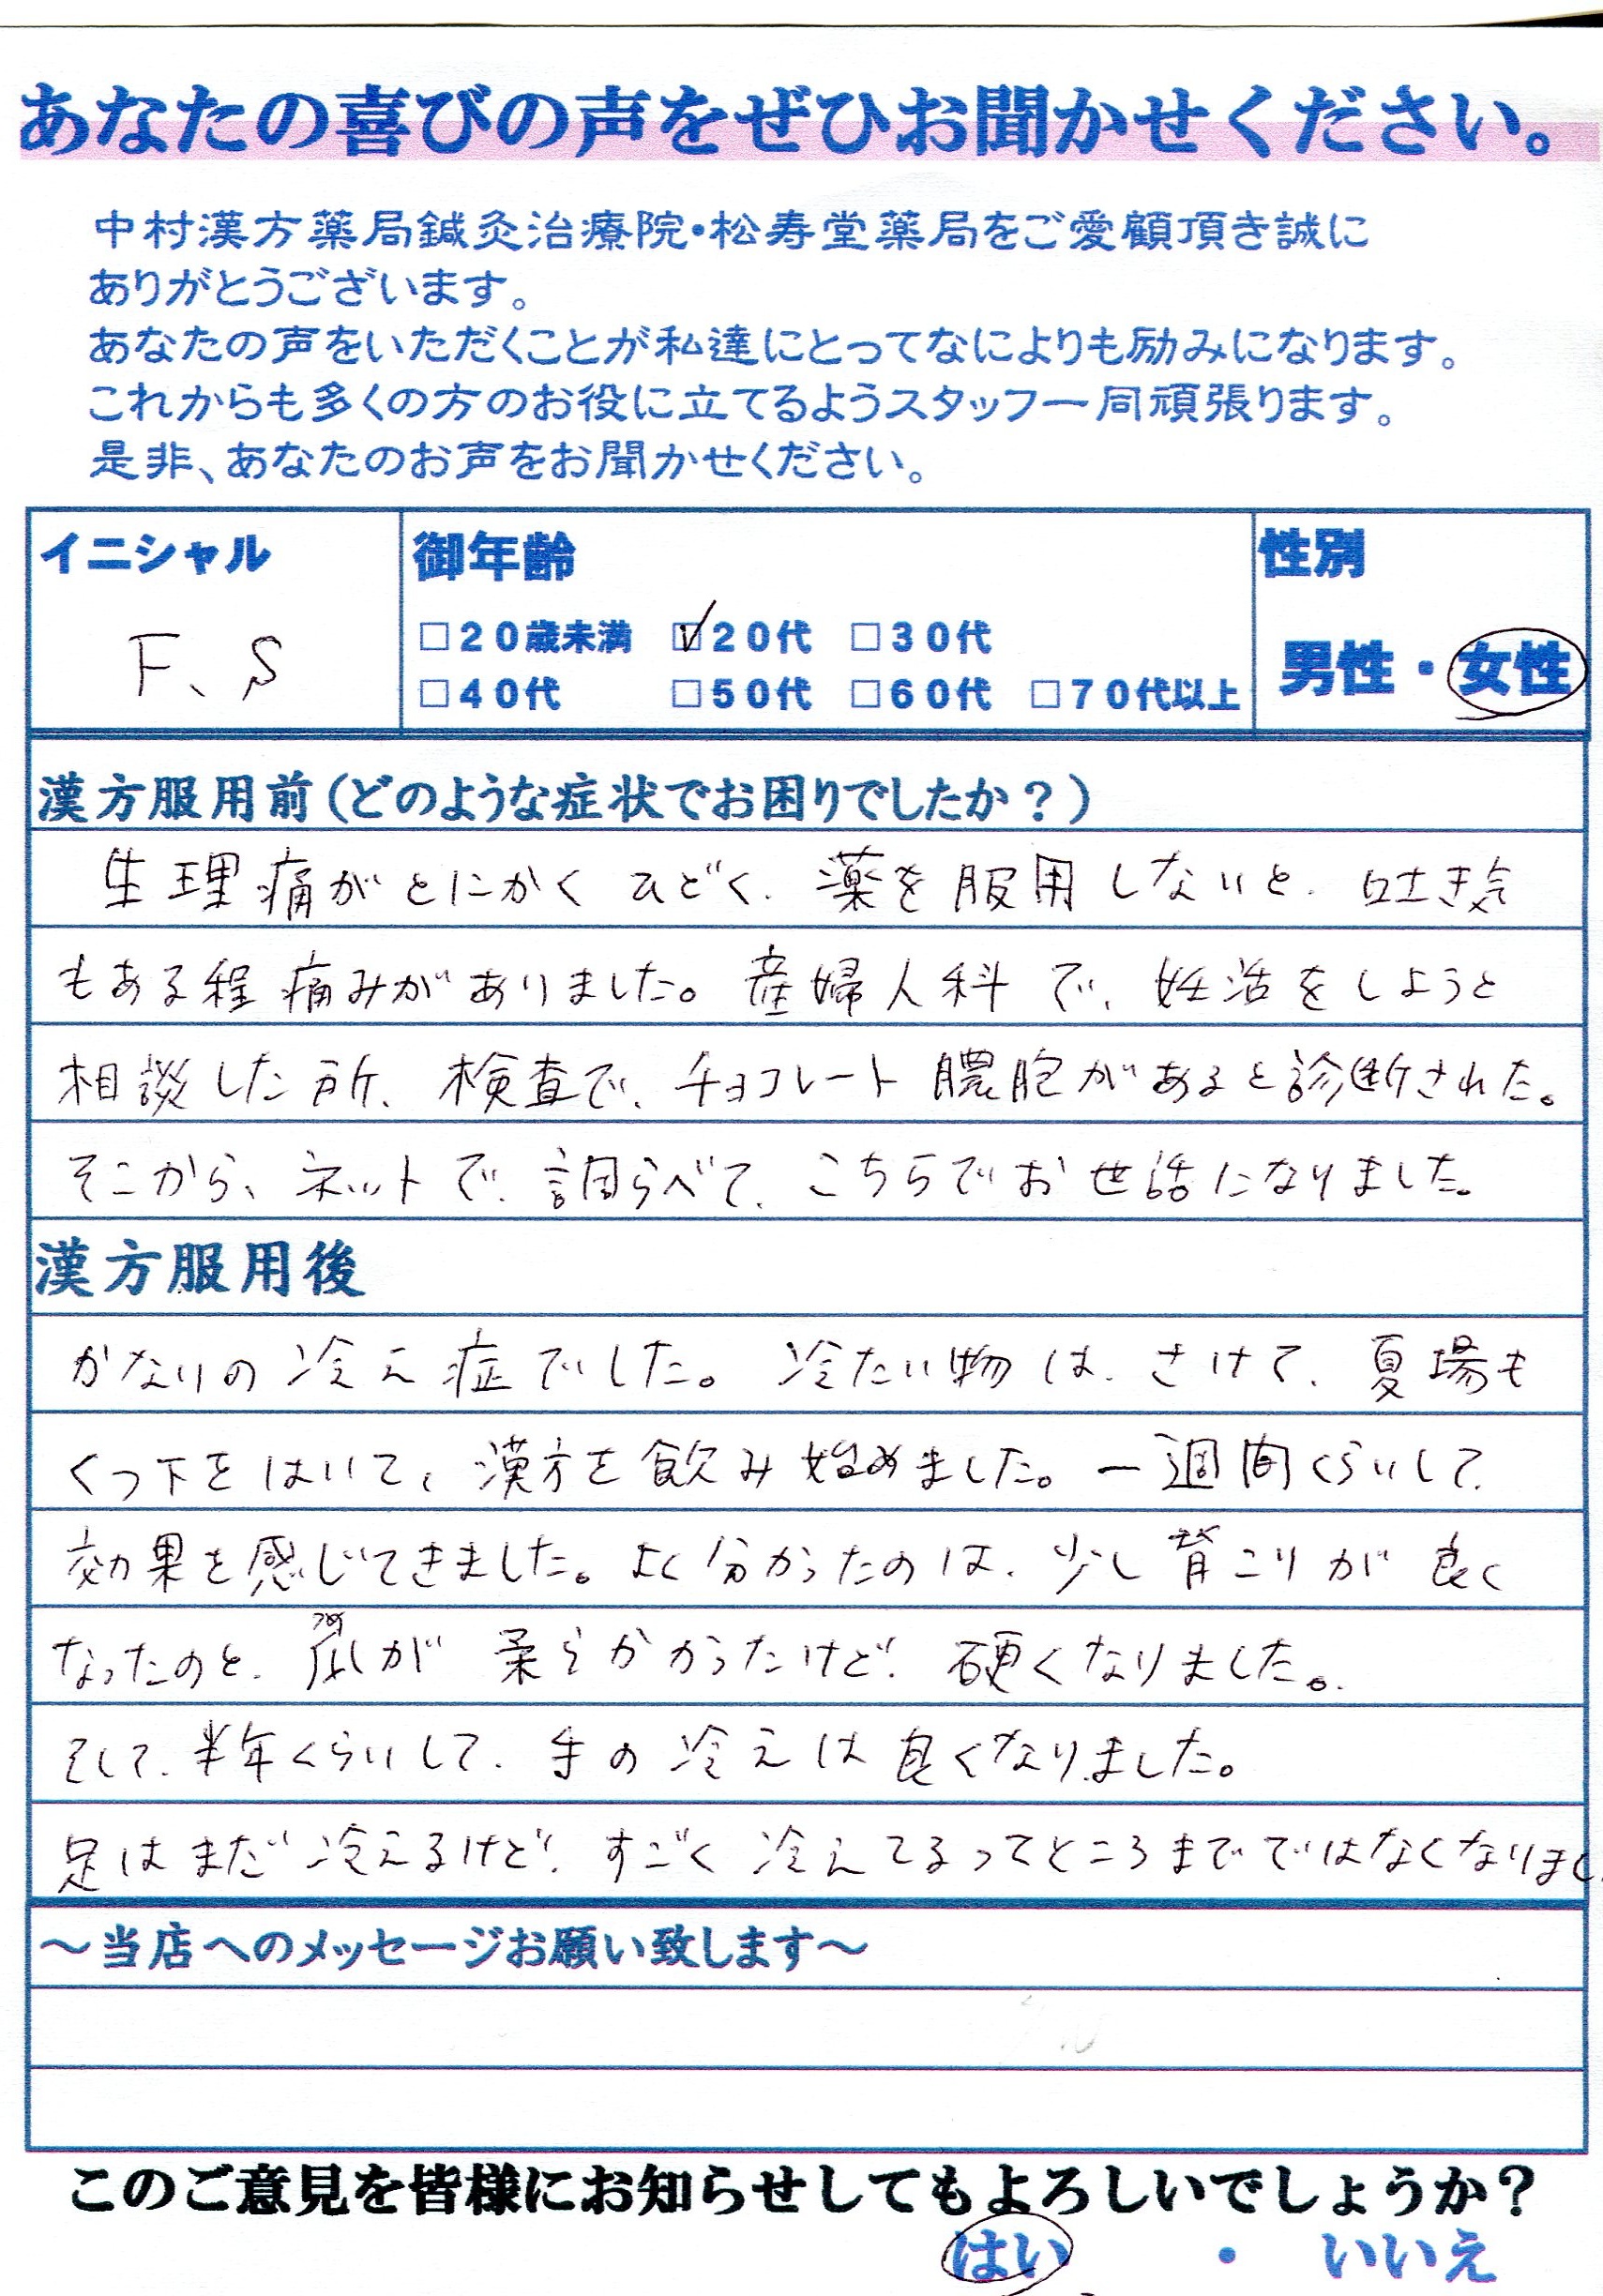 あなたの喜びの声をぜひお聞かせください。
中村漢方薬局鍼灸治療院・松寿堂薬局をご愛顧頂き誠に
ありがとうございます。
あなたの声をいただくことが私達にとってなによりも励みになります。
これからも多くの方のお役に立てるようスタッフ一同頑張ります。
是非、あなたのお声をお聞かせください。
イニシャル 御年齢 性別
□20歳未満 ☑20代 □30代
F、S 男性・女性
□40代 □50代 □60代 □70代以上
漢方服用前(どのような症状でお困りでしたか?)
生理痛がとにかくひどく、薬を服用しないと、吐き気
もある程痛みがありました。産婦人科で、妊活をしようと
相談した所、検査で、チョコレート膿胞があると診断された。
そこから、ネットで、調らべて、こちらでお世話になりました。
漢方服用後
かなりの冷え症でした。冷たい物は、さけて、夏場も
くつ下をはいて、漢方を飲み始めました。一週間くらいして、
効果を感じてきました。よく分かったのは、少し背こりが良く
なったのと、爪が柔らかかったけど、硬くなりました。
つめ
そして、半年くらいして、手の冷えは良くなりました。
足はまだ冷えるけど、すごく冷えてるってところまでではなくなりまし
~当店へのメッセージお願い致します~
このご意見を皆様にお知らせしてもよろしいでしょうか?
はい ・ いいえ